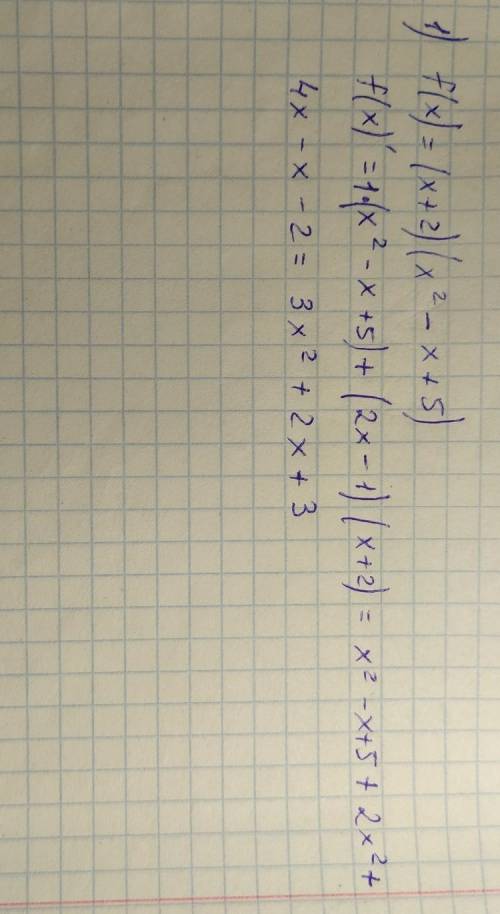 1) f(x) = (x+2)(x² - x + 5)
f(x)' = 1·(x² - x + 5) + (2x - 1)(x+2) = x² - x + 5 + 2x² +
4x - x - 2 = 3x² + 2x + 3